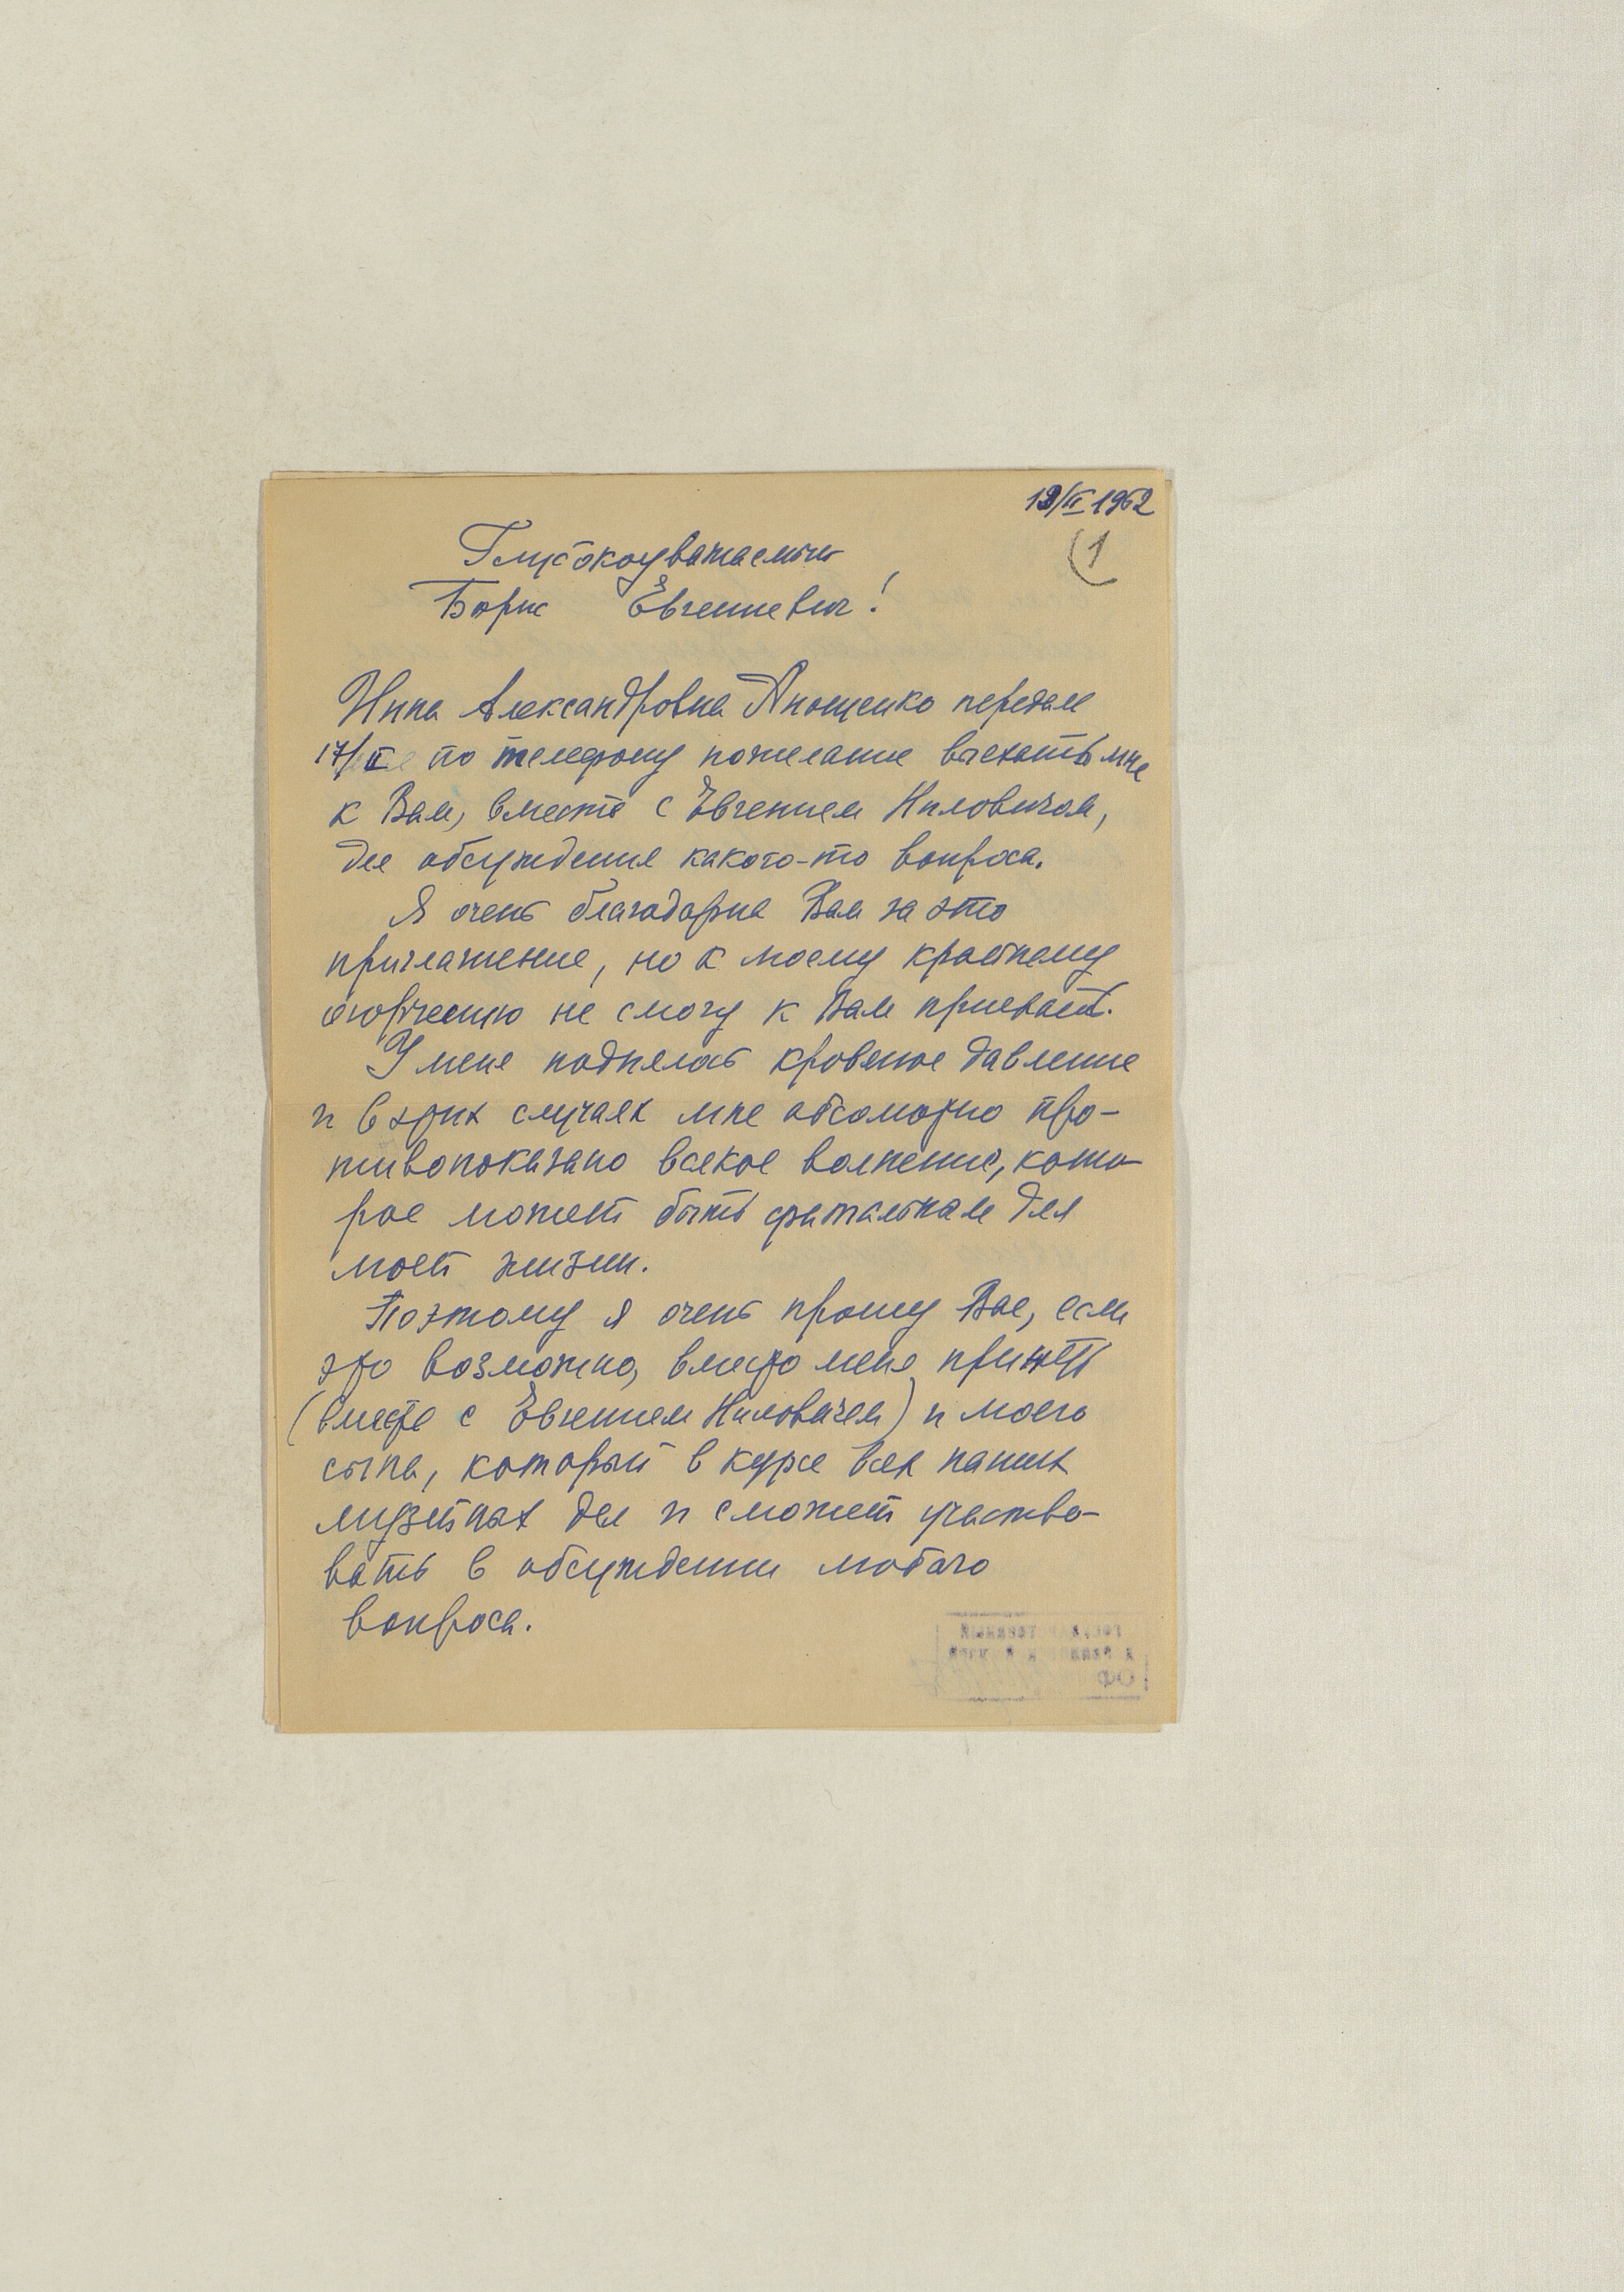 19/II 1962
(1
Глубокоуважаемый
Борис Евгениевич!
Нина Александровна Анощенко передала
17/II по телефону пожелание выехать мне
к Вам, вместе с Евгением Ниловичем,
для обсуждения какого-то вопроса.
Я очень благодарна Вам за это
приглашение, но к моему крайнему
огорчению не смогу к Вам приехать.
У меня поднялось кровяное давление
и в этих случаях мне абсолютно про-
тивопоказано всякое волнение, кото-
рое может быть фатальным для
моей жизни.
Поэтому я очень прошу Вас, если
это возможно, вместо меня принять
(вместе с Евгением Ниловичем) и моего
сына, который в курсе всех наших
музейных дел и сможет участво-
вать в обсуждении любого
вопроса.